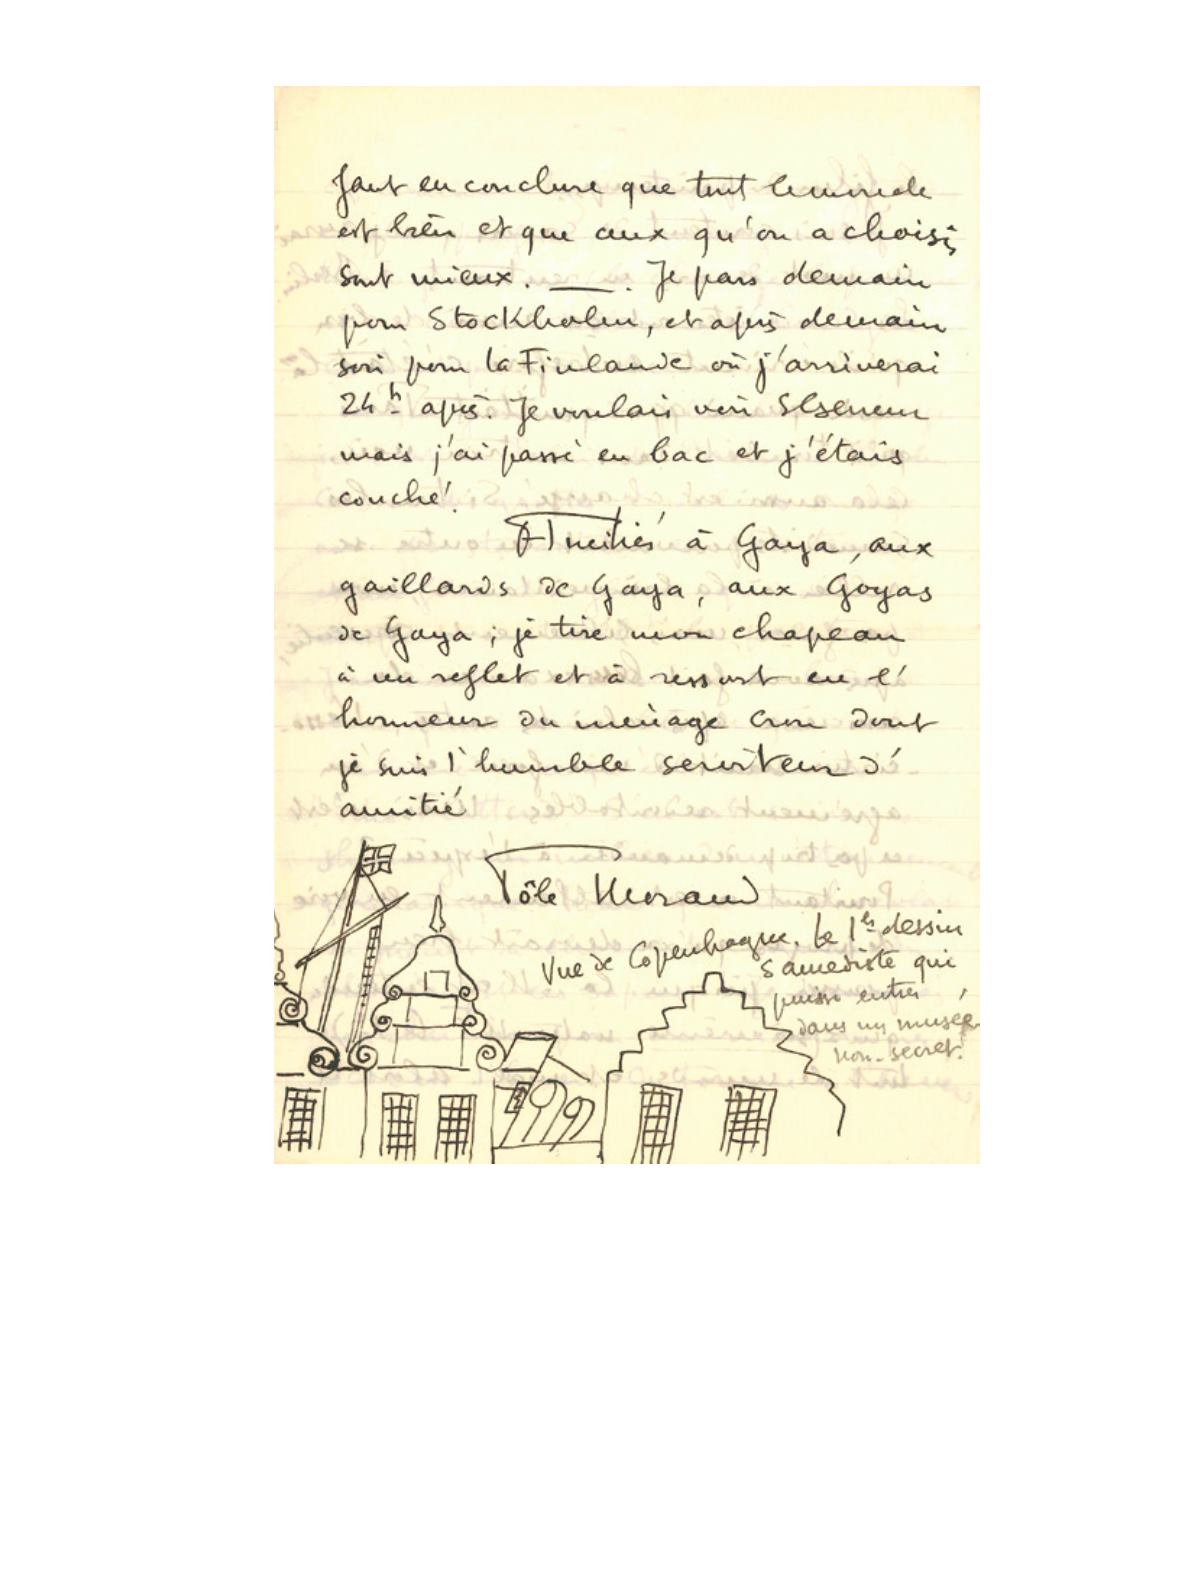 faut en conclure que tout le monde
est bien et que ceux qu'on a choisis
sont mieux. —. Je pars demain
pour Stockholm, et après demain
soir pour la Finlande où j'arriverai
24h après. Je voulais voir Elseneur
mais j'ai passé en bac et j'étais
couché!
Amitiés à Gaya, aux
gaillards de Gaya, aux Goyas
de Gaya ; je tire mon chapeau
à un reflet et à ressort en l'
honneur du ménage dont
je suis l'humble serviteur d'
amitié
Pôle Morand
Vue de Copenhague. Le 1er dessin
samediste qui
puisse entrer
dans un musée
non-secret!